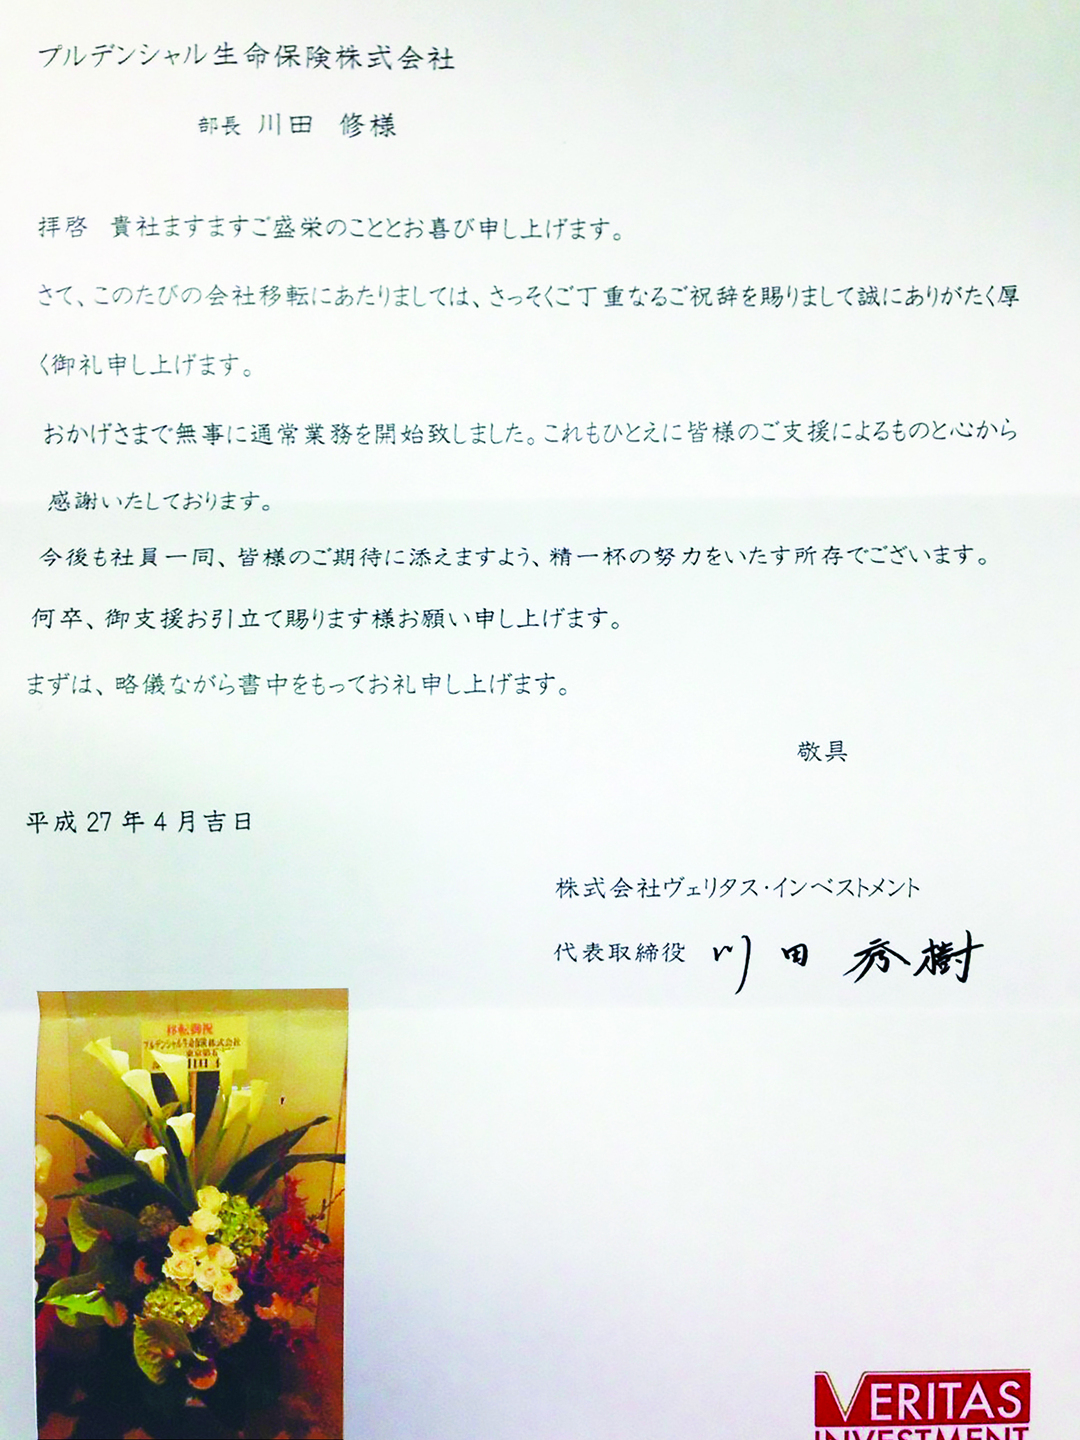 プルデンシャル生命保険株式会社
部長 川田 修様
拝啓 貴社ますますご盛栄のこととお喜び申し上げます。
さて、このたびの会社移転にあたりましては、さっそくご丁重なるご祝辞を賜りまして誠にありがたく厚
く御礼申し上げます。
おかげさまで無事に通常業務を開始致しました。これもひとえに皆様のご支援によるものと心から
感謝いたしております。
今後も社員一同、皆様のご期待に添えますよう、精一杯の努力をいたす所存でございます。
何卒、御支援お引立て賜ります様お願い申し上げます。
まずは、略儀ながら書中をもってお礼申し上げます。
敬具
平成 27 年 4 月吉日
株式会社ヴェリタス・インベストメント
代表取締役 川田 秀樹
移転御祝
プルデンシャル生命保険株式会社
VERITAS
INVESTMENT